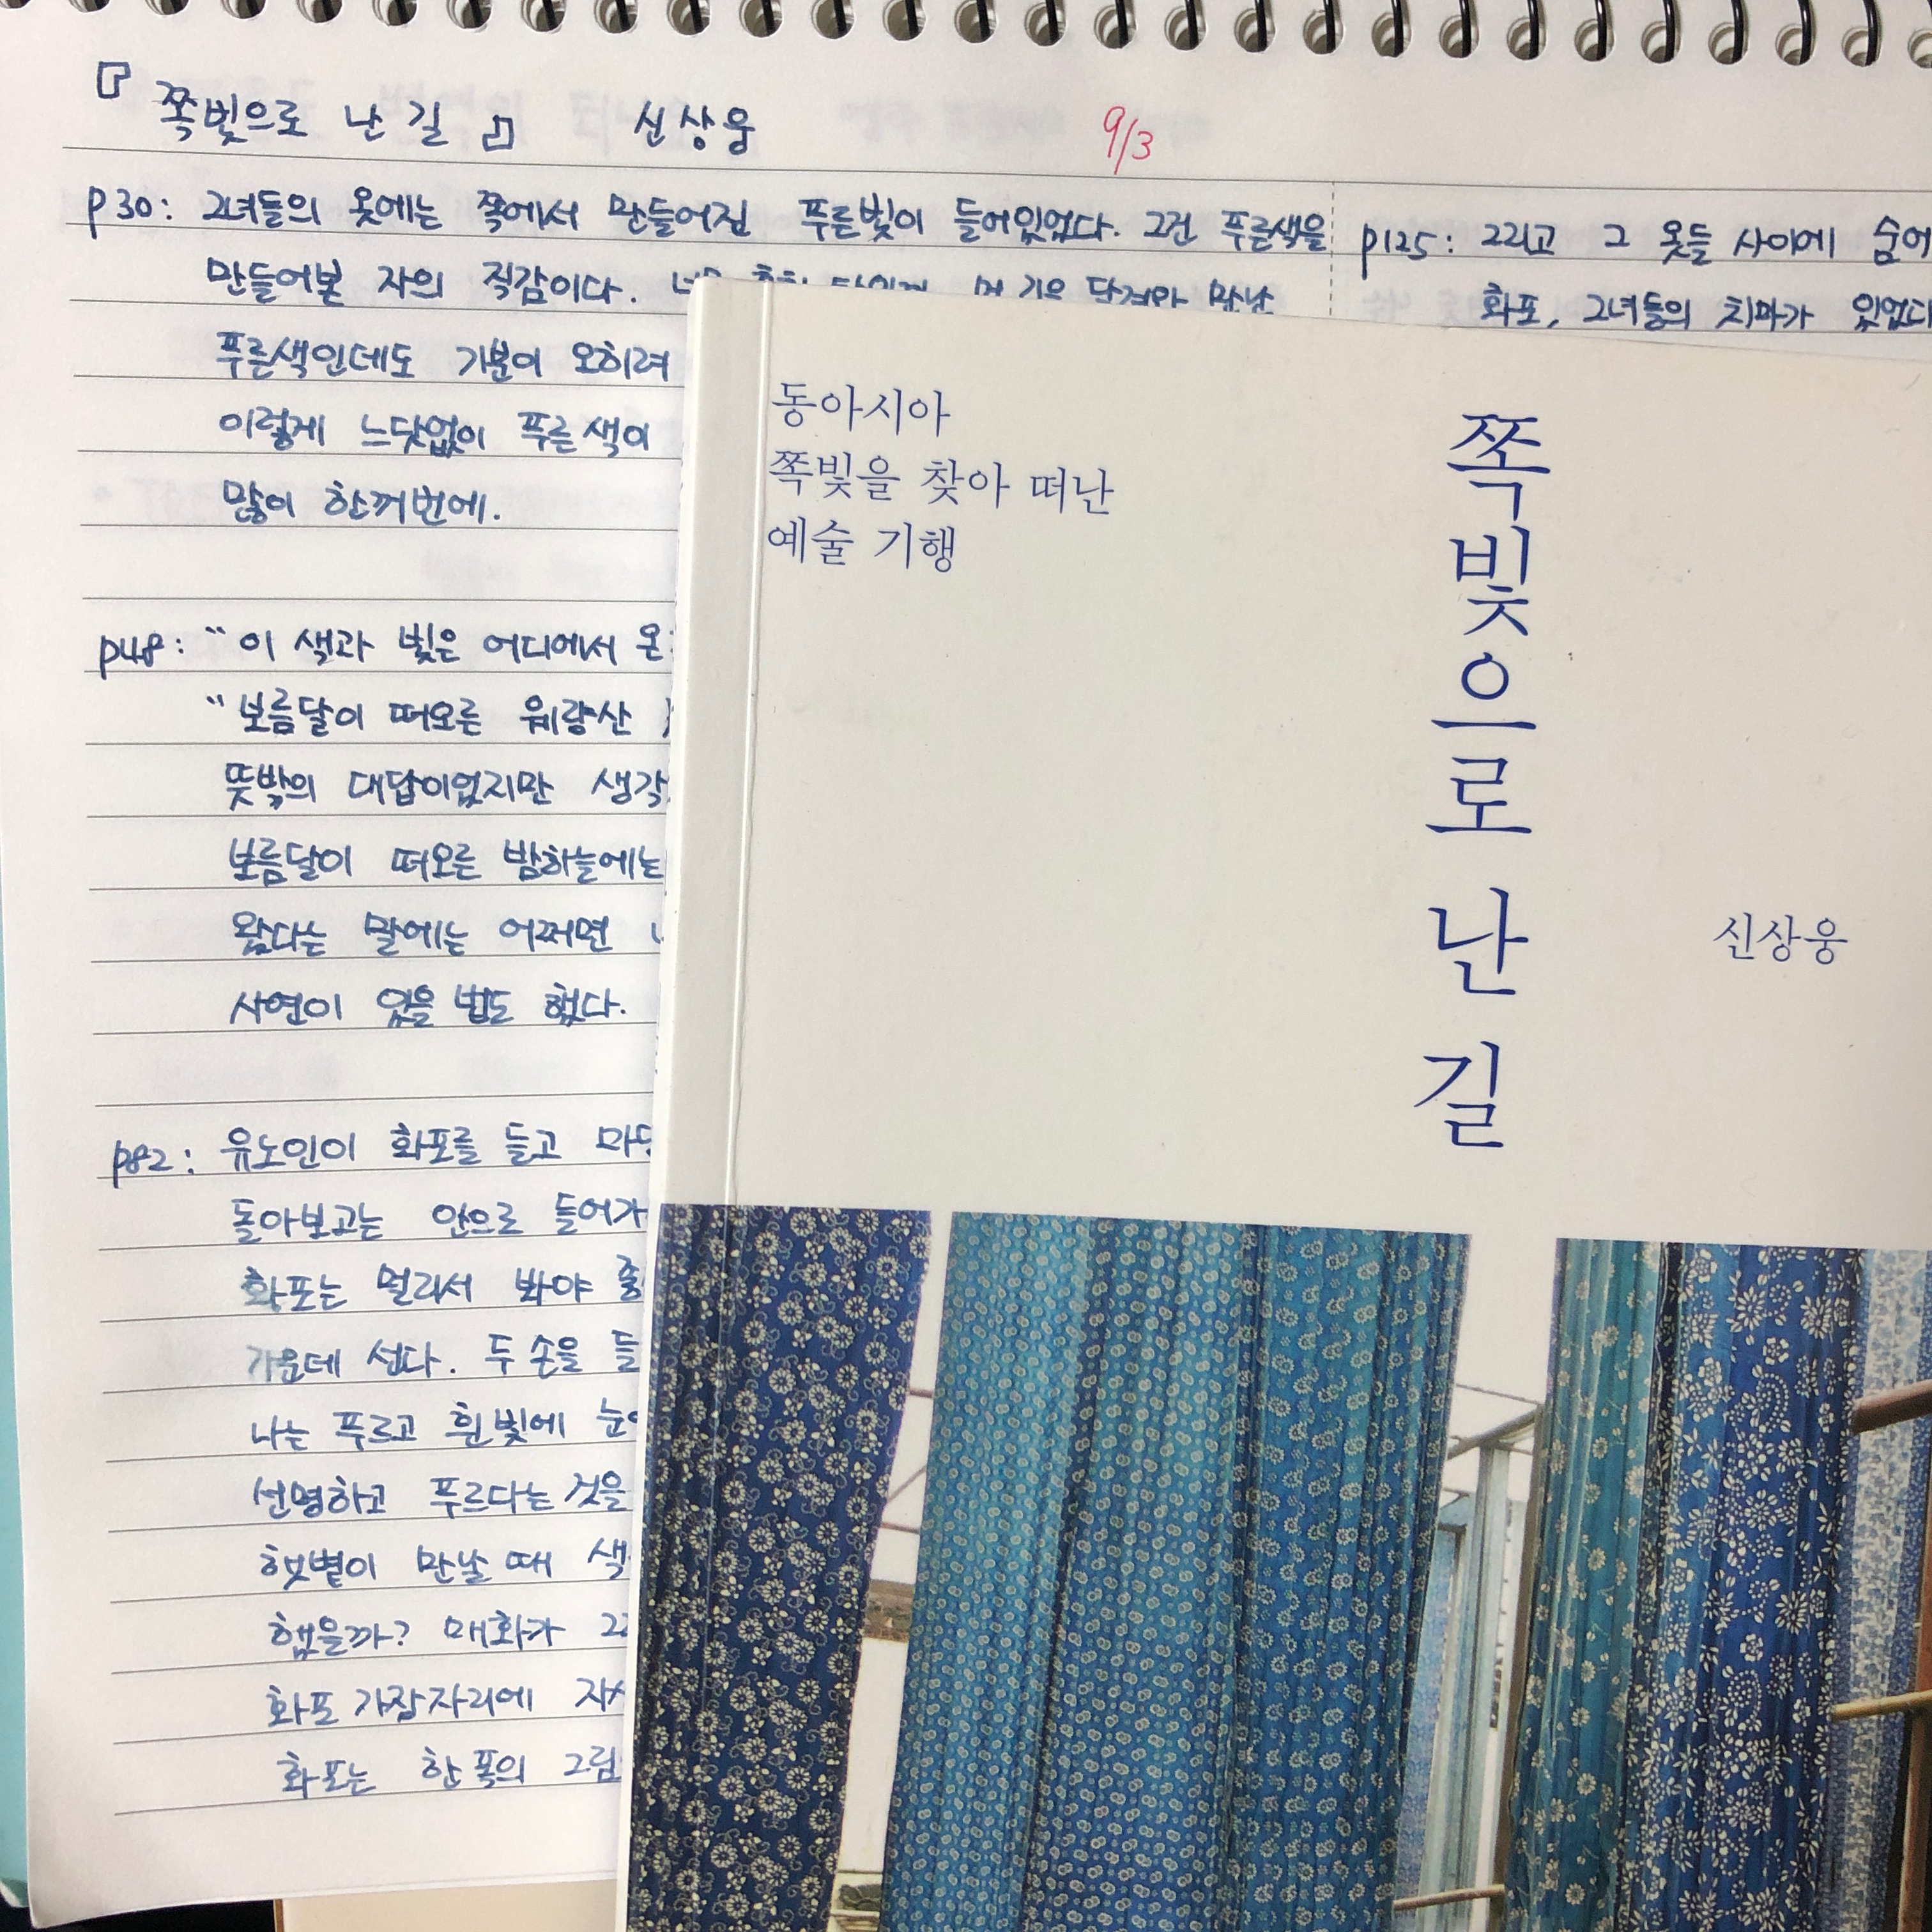 『쪽빛으로 난 길』 신상웅 9/3
p30: 그녀들의 옷에는 쪽에서 만들어진 푸른빛이 들어있었다. 그건 푸른색을
만들어본 자의 직감이다.
푸른색인데도 기분이 오히려
이렇게 느닷없이 푸른색이
많이 한꺼번에.
p48: "이 색과 빛은 어디에서
"보름달이 떠오른 웨량산
뜻밖의 대답이었지만
보름달이 떠오른 밤하늘에는
왔다는 말에는 어쩌면
사연이 있을 법도 했다.
p82: 유노인이 화포를 들고
돌아보고는 안으로
화포는 멀리서 봐야
가운데 선다. 두 손을
나는 푸르고 흰빛에
선명하고 푸르다는 것을
햇볕이 만날 때
했을까? 매화가
화포 가장자리에
화포는 한 폭의
p125: 그리고 그 옷들 사이에
화포, 그녀들의 치마가
동아시아
쪽빛을 찾아 떠난
예술 기행
쪽빛으로 난 길
신상웅